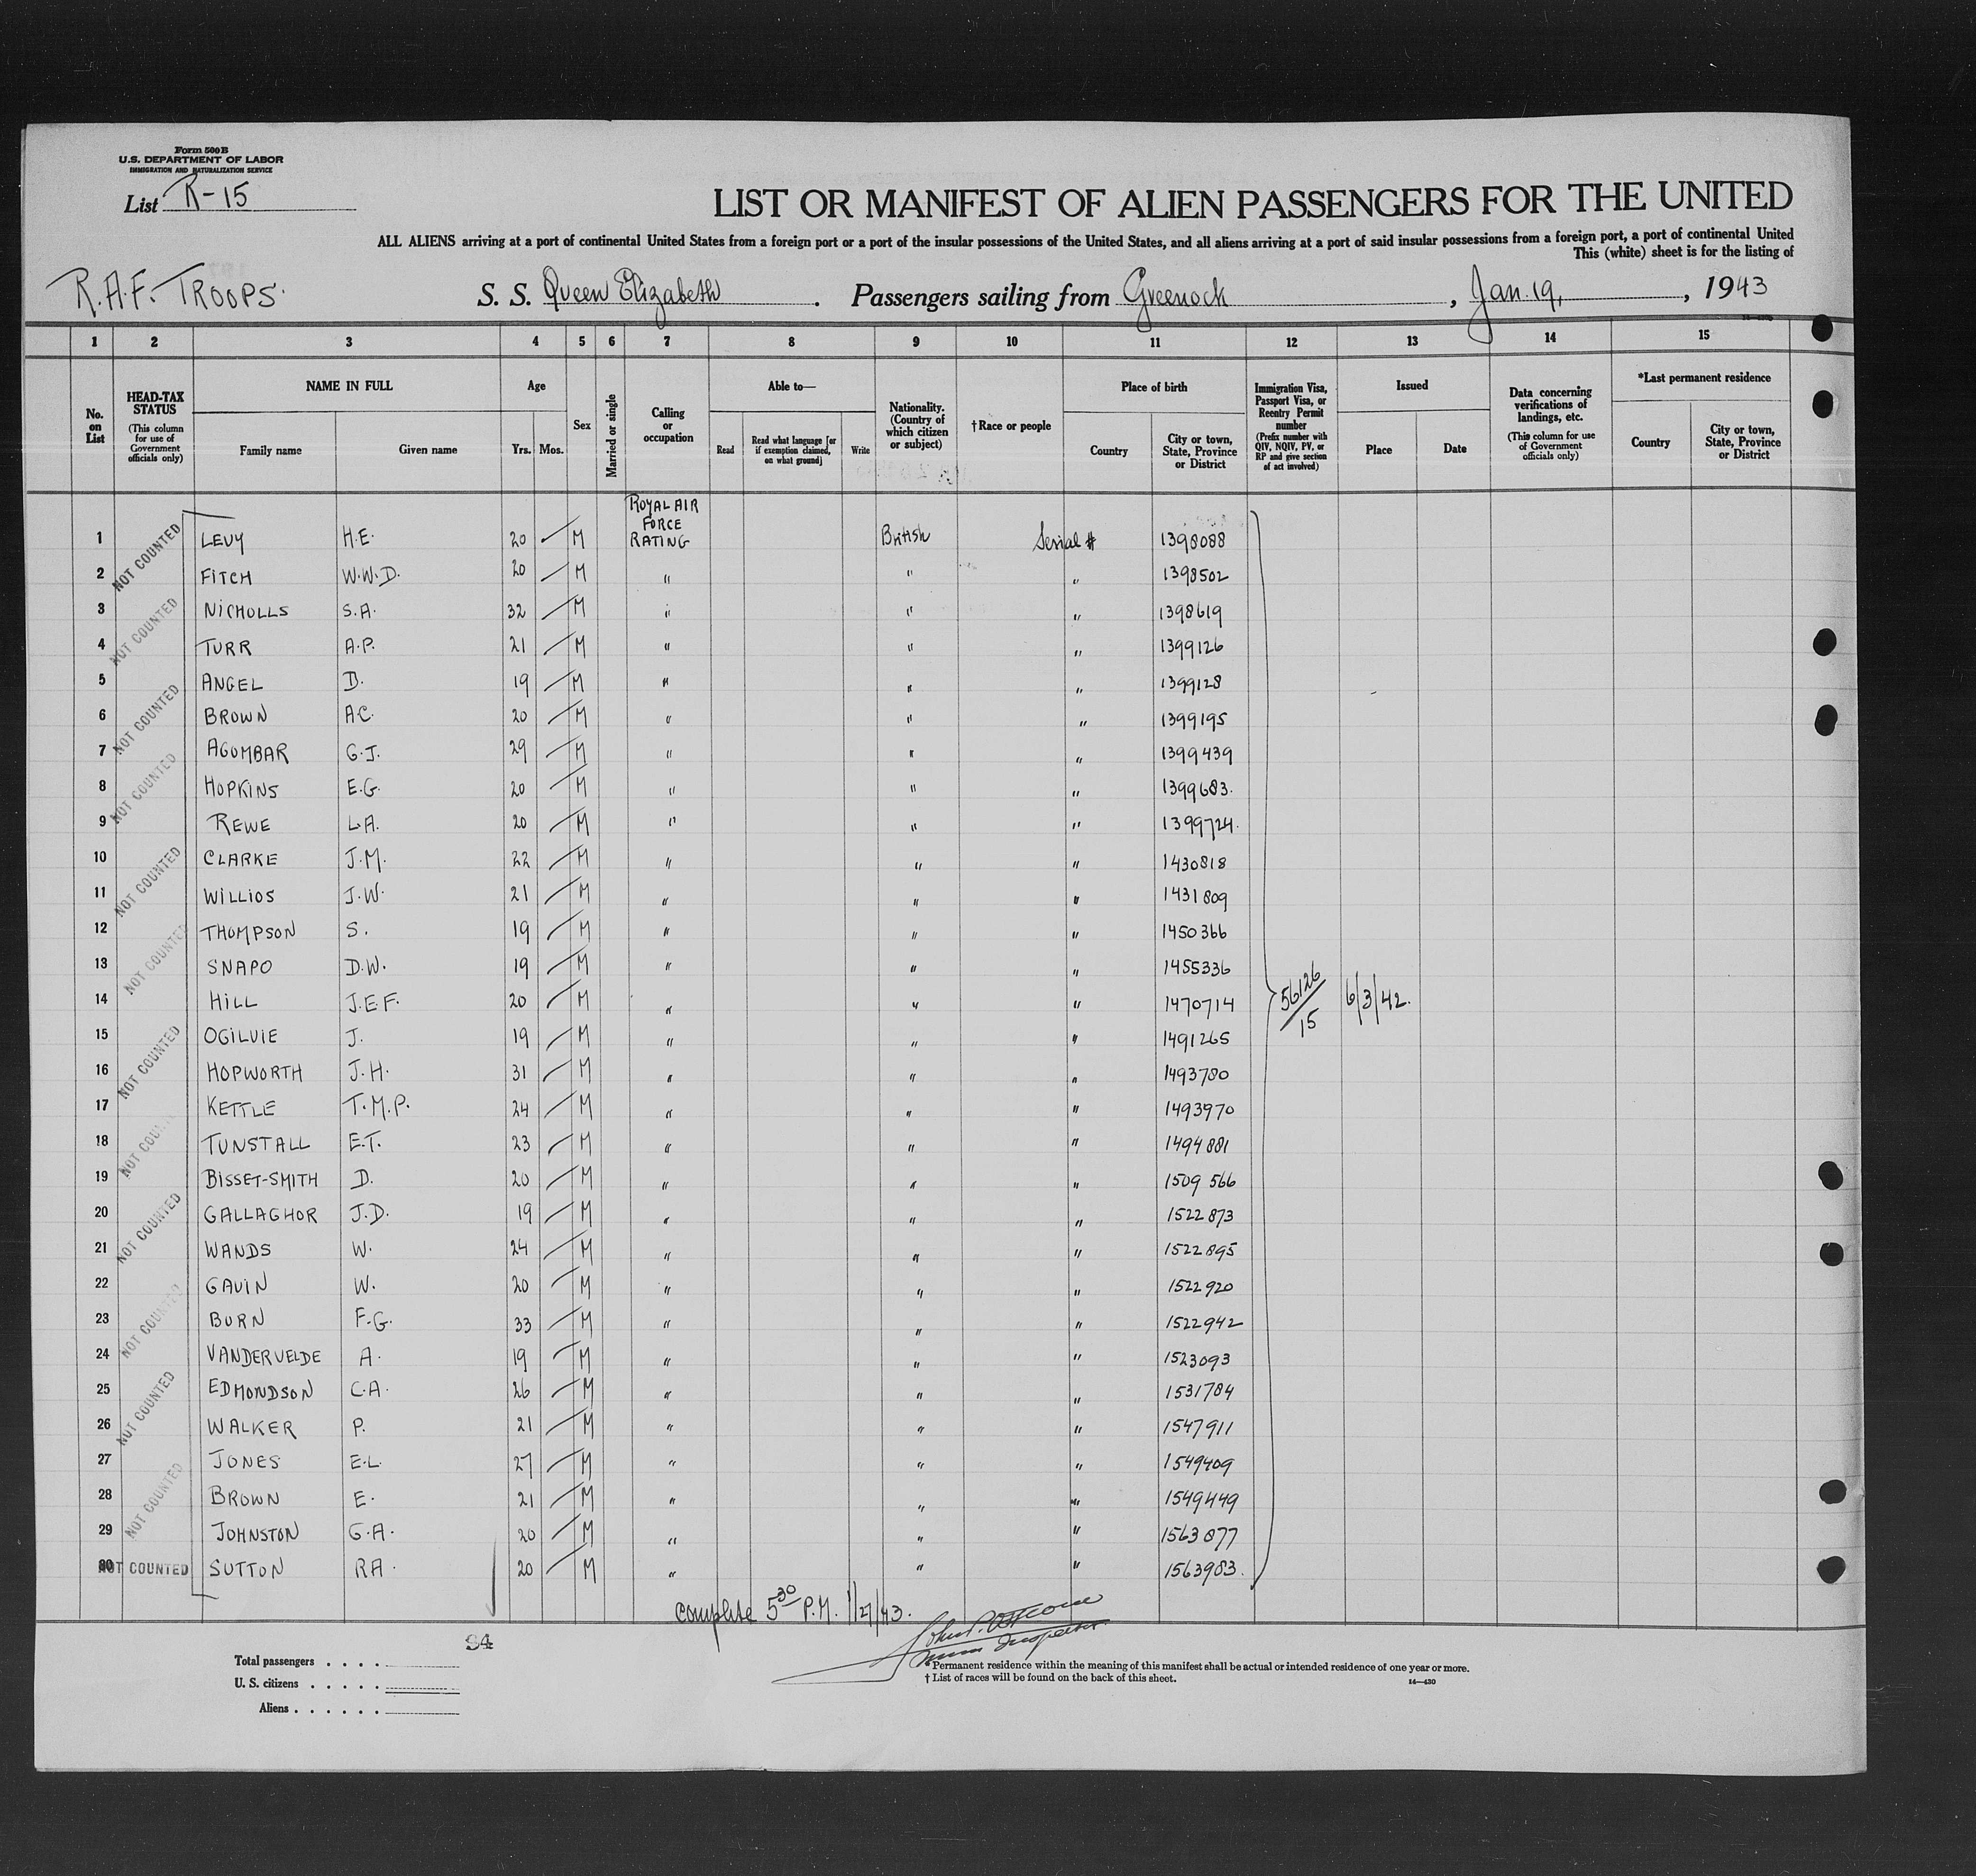 Form 500B
U.S. DEPARTMENT OF LABOR
IMMIGRATION AND NATURALIZATION SERVICE
List R-15
LIST OR MANIFEST OF ALIEN PASSENGERS FOR THE UNITED
ALL ALIENS arriving at a port of continental United States from a foreign port or a port of the insular possessions of the United States, and all aliens arriving at a port of said insular possessions from a foreign port, a port of continental United
This (white) sheet is for the listing of
R.A.F. TROOPS. S. S. Queen Elizabeth . Passengers sailing from Greenock , Jan. 19, , 1943
1 2 3 4 5 6 7 8 9 10 11 12 13 14 15
No. on List
HEAD-TAX STATUS (This column for use of Government officials only)
NAME IN FULL
Family name Given name
Age
Yrs. Mos.
Sex
Married or single
Calling or occupation
Able to—
Read
Read what language [or if exemption claimed, on what ground]
Write
Nationality. (Country of which citizen or subject)
†Race or people
Place of birth
Country
City or town, State, Province or District
Immigration Visa, Passport Visa, or Reentry Permit number (Prefix number with QIV, NQIV, PV, or RP and give section of act involved)
Issued
Place Date
Data concerning verifications of landings, etc. (This column for use of Government officials only)
*Last permanent residence
Country
City or town, State, Province or District
1 LEVY H.E. 20 M ROYAL AIR FORCE RATING British Serial # 1398088
2 FITCH W.W.D. 20 M " " " 1398502
3 NICHOLLS S.A. 32 M " " " 1398619
4 TURR A.P. 21 M " " " 1399126
5 ANGEL D. 19 M " " " 1399128
6 BROWN A.C. 20 M " " " 1399195
7 AGOMBAR G.J. 29 M " " " 1399439
8 HOPKINS E.G. 20 M " " " 1399683.
9 REWE L.A. 20 M " " " 1399724.
10 CLARKE J.M. 22 M " " " 1430818
11 WILLIOS J.W. 21 M " " " 1431809
12 THOMPSON S. 19 M " " " 1450366
13 SNAPO D.W. 19 M " " " 1455336
14 HILL J.E.F. 20 M " " " 1470714 56126/15 6/3/42.
15 OGILVIE J. 19 M " " " 1491265
16 HOPWORTH J.H. 31 M " " " 1493780
17 KETTLE T.M.P. 24 M " " " 1493970
18 TUNSTALL E.T. 23 M " " " 1494881
19 BISSET-SMITH D. 20 M " " " 1509566
20 GALLAGHOR J.D. 19 M " " " 1522873
21 WANDS W. 24 M " " " 1522895
22 GAVIN W. 20 M " " " 1522920
23 BURN F.G. 33 M " " " 1522942
24 VANDERVELDE A. 19 M " " " 1523093
25 EDMONDSON C.A. 26 M " " " 1531784
26 WALKER P. 21 M " " " 1547911
27 JONES E.L. 27 M " " " 1549409
28 BROWN E. 21 M " " " 1549449
29 JOHNSTON G.A. 20 M " " " 1563877
30 SUTTON R.A. 20 M " " " 1563983.
NOT COUNTED
NOT COUNTED
NOT COUNTED
NOT COUNTED
NOT COUNTED
NOT COUNTED
NOT COUNTED
NOT COUNTED
NOT COUNTED
NOT COUNTED
NOT COUNTED
NOT COUNTED
NOT COUNTED
Complete 5 30 P.M. 1/27/43.
94
Total passengers . . . .
U. S. citizens . . . . .
Aliens . . . . . .
*Permanent residence within the meaning of this manifest shall be actual or intended residence of one year or more.
† List of races will be found on the back of this sheet.
14—430